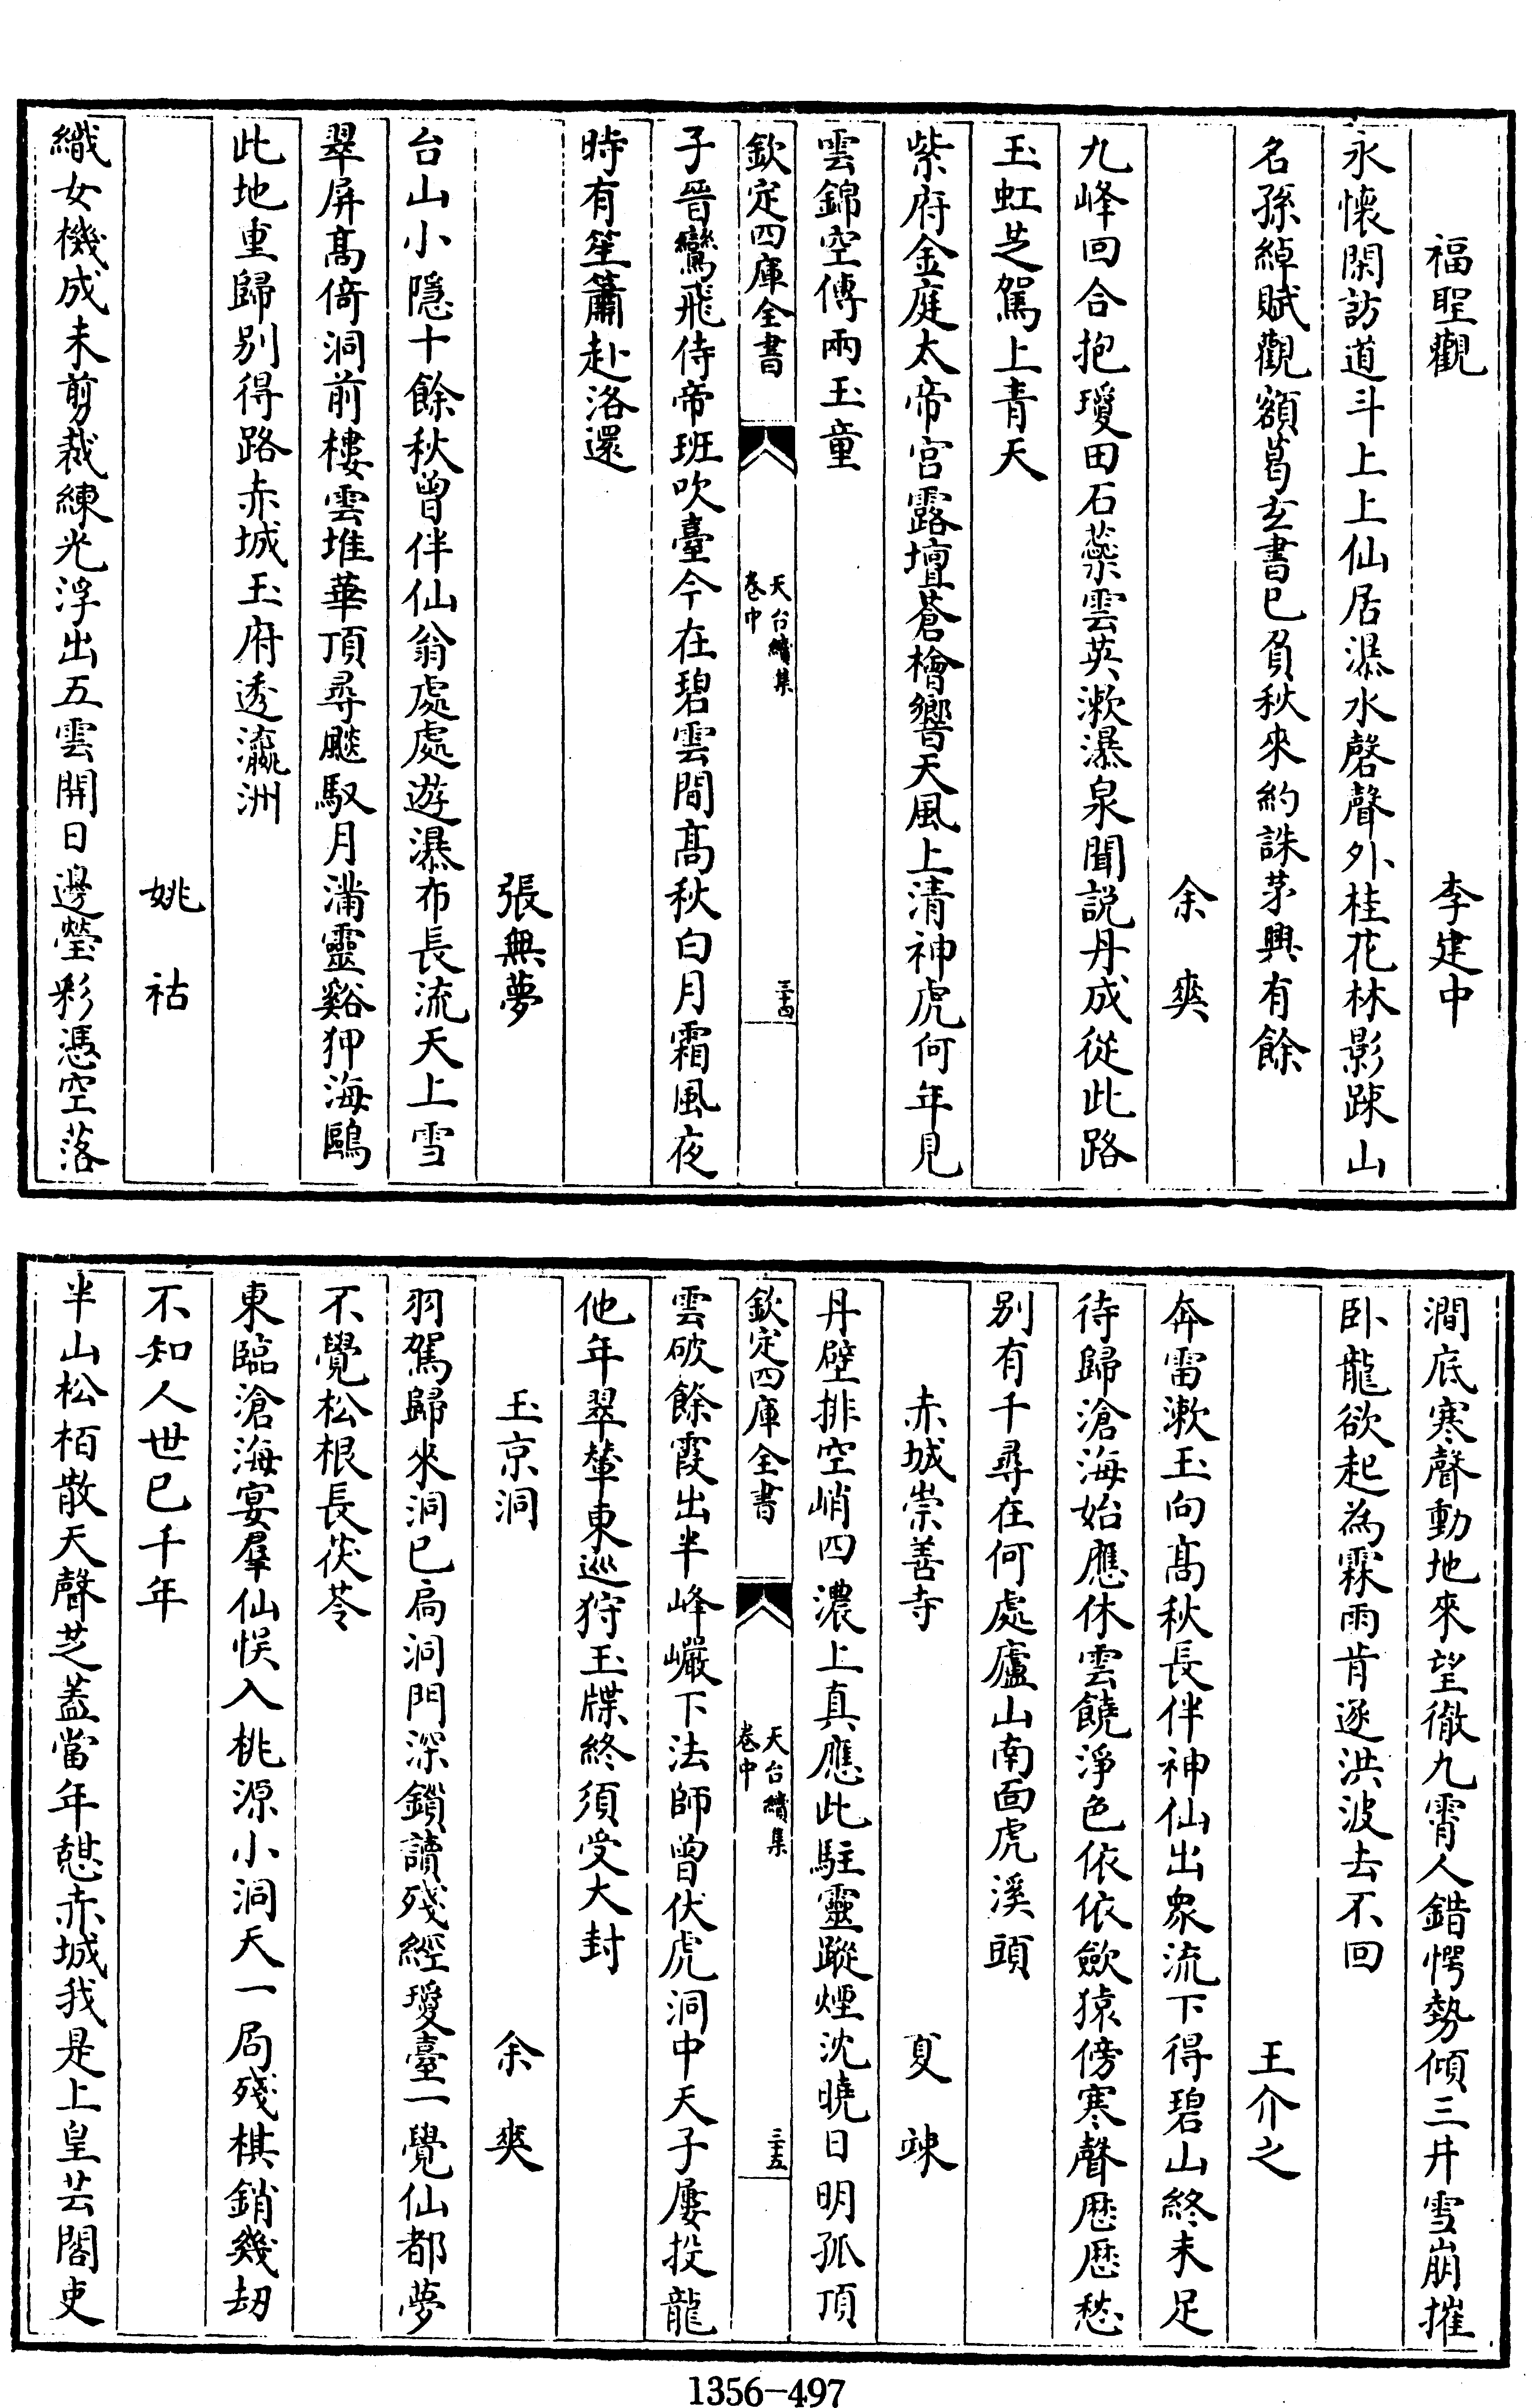 福聖觀　李建中
永懷閑訪道斗上上仙居瀑水磬聲外桂花林影踈山
名孫綽賦觀額葛玄書已負秋來約誅茅興有餘
余爽
九峰回合抱瓊田石蘂雲英漱瀑泉聞説丹成從此路
玉虹芝駕上青天
紫府金庭太帝宫露壇蒼檜響天風上清神虎何年見
雲錦空傳兩玉童
欽定四庫全書　天台續集卷中　三十四
子晉鸞飛侍帝班吹臺今在碧雲間髙秋白月霜風夜
時有笙簫赴洛還
張無夢
台山小隱十餘秋曾伴仙翁處處遊瀑布長流天上雪
翠屏髙倚洞前樓雲堆華頂尋飈馭月滿靈谿狎海鷗
此地重歸别得路赤城玉府透瀛洲
姚祜
織女機成未剪裁練光浮出五雲開日邊瑩彩憑空落
澗底寒聲動地來望徹九霄人錯愕勢傾三井雪崩摧
卧龍欲起為霖雨肯逐洪波去不回
王介之
奔雷漱玉向髙秋長伴神仙出衆流下得碧山終未足
待歸滄海始應休雲饒淨色依依歛猿傍寒聲歴歴愁
别有千尋在何處廬山南面虎溪頭
赤城崇善寺　夏竦
丹壁排空峭四濃上真應此駐靈蹤煙沈曉日明孤頂
欽定四庫全書　天台續集卷中　三十五
雲破餘霞出半峰巗下法師曾伏虎洞中天子屢投龍
他年翠輦東巡狩玉牒終須受大封
玉京洞　余爽
羽駕歸來洞已扃洞門深鎖讀殘經瓊臺一覺仙都夢
不覺松根長茯苓
東臨滄海宴羣仙悮入桃源小洞天一局殘棋銷幾刧
不知人世已千年
半山松栢散天聲芝盖當年憇赤城我是上皇芸閣吏
1356-497